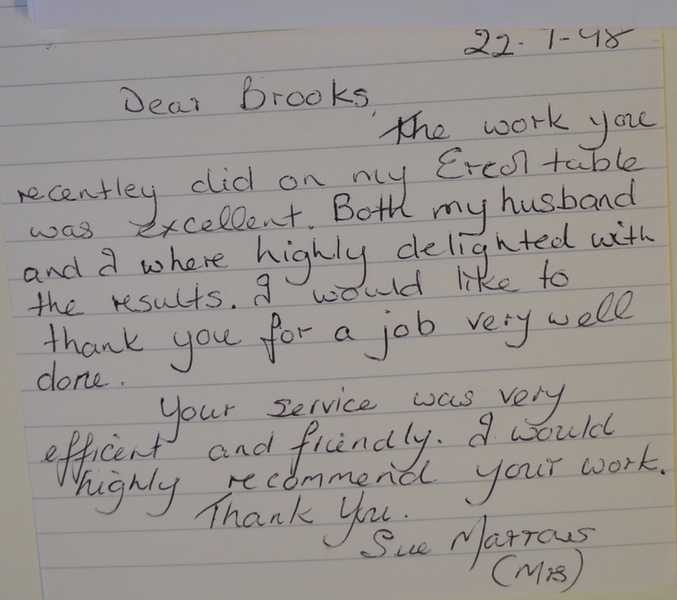 22. 1-98
Dear Brooks,
The work you
recentley did on my Ercol table
was excellent. Both my husband
and I where highly delighted with
the results. I would like to
thank you for a job very well
done.
Your service was very
efficent and friendly. I would
highly recommend your work.
Thank You.
Sue Marrows
(Mrs)